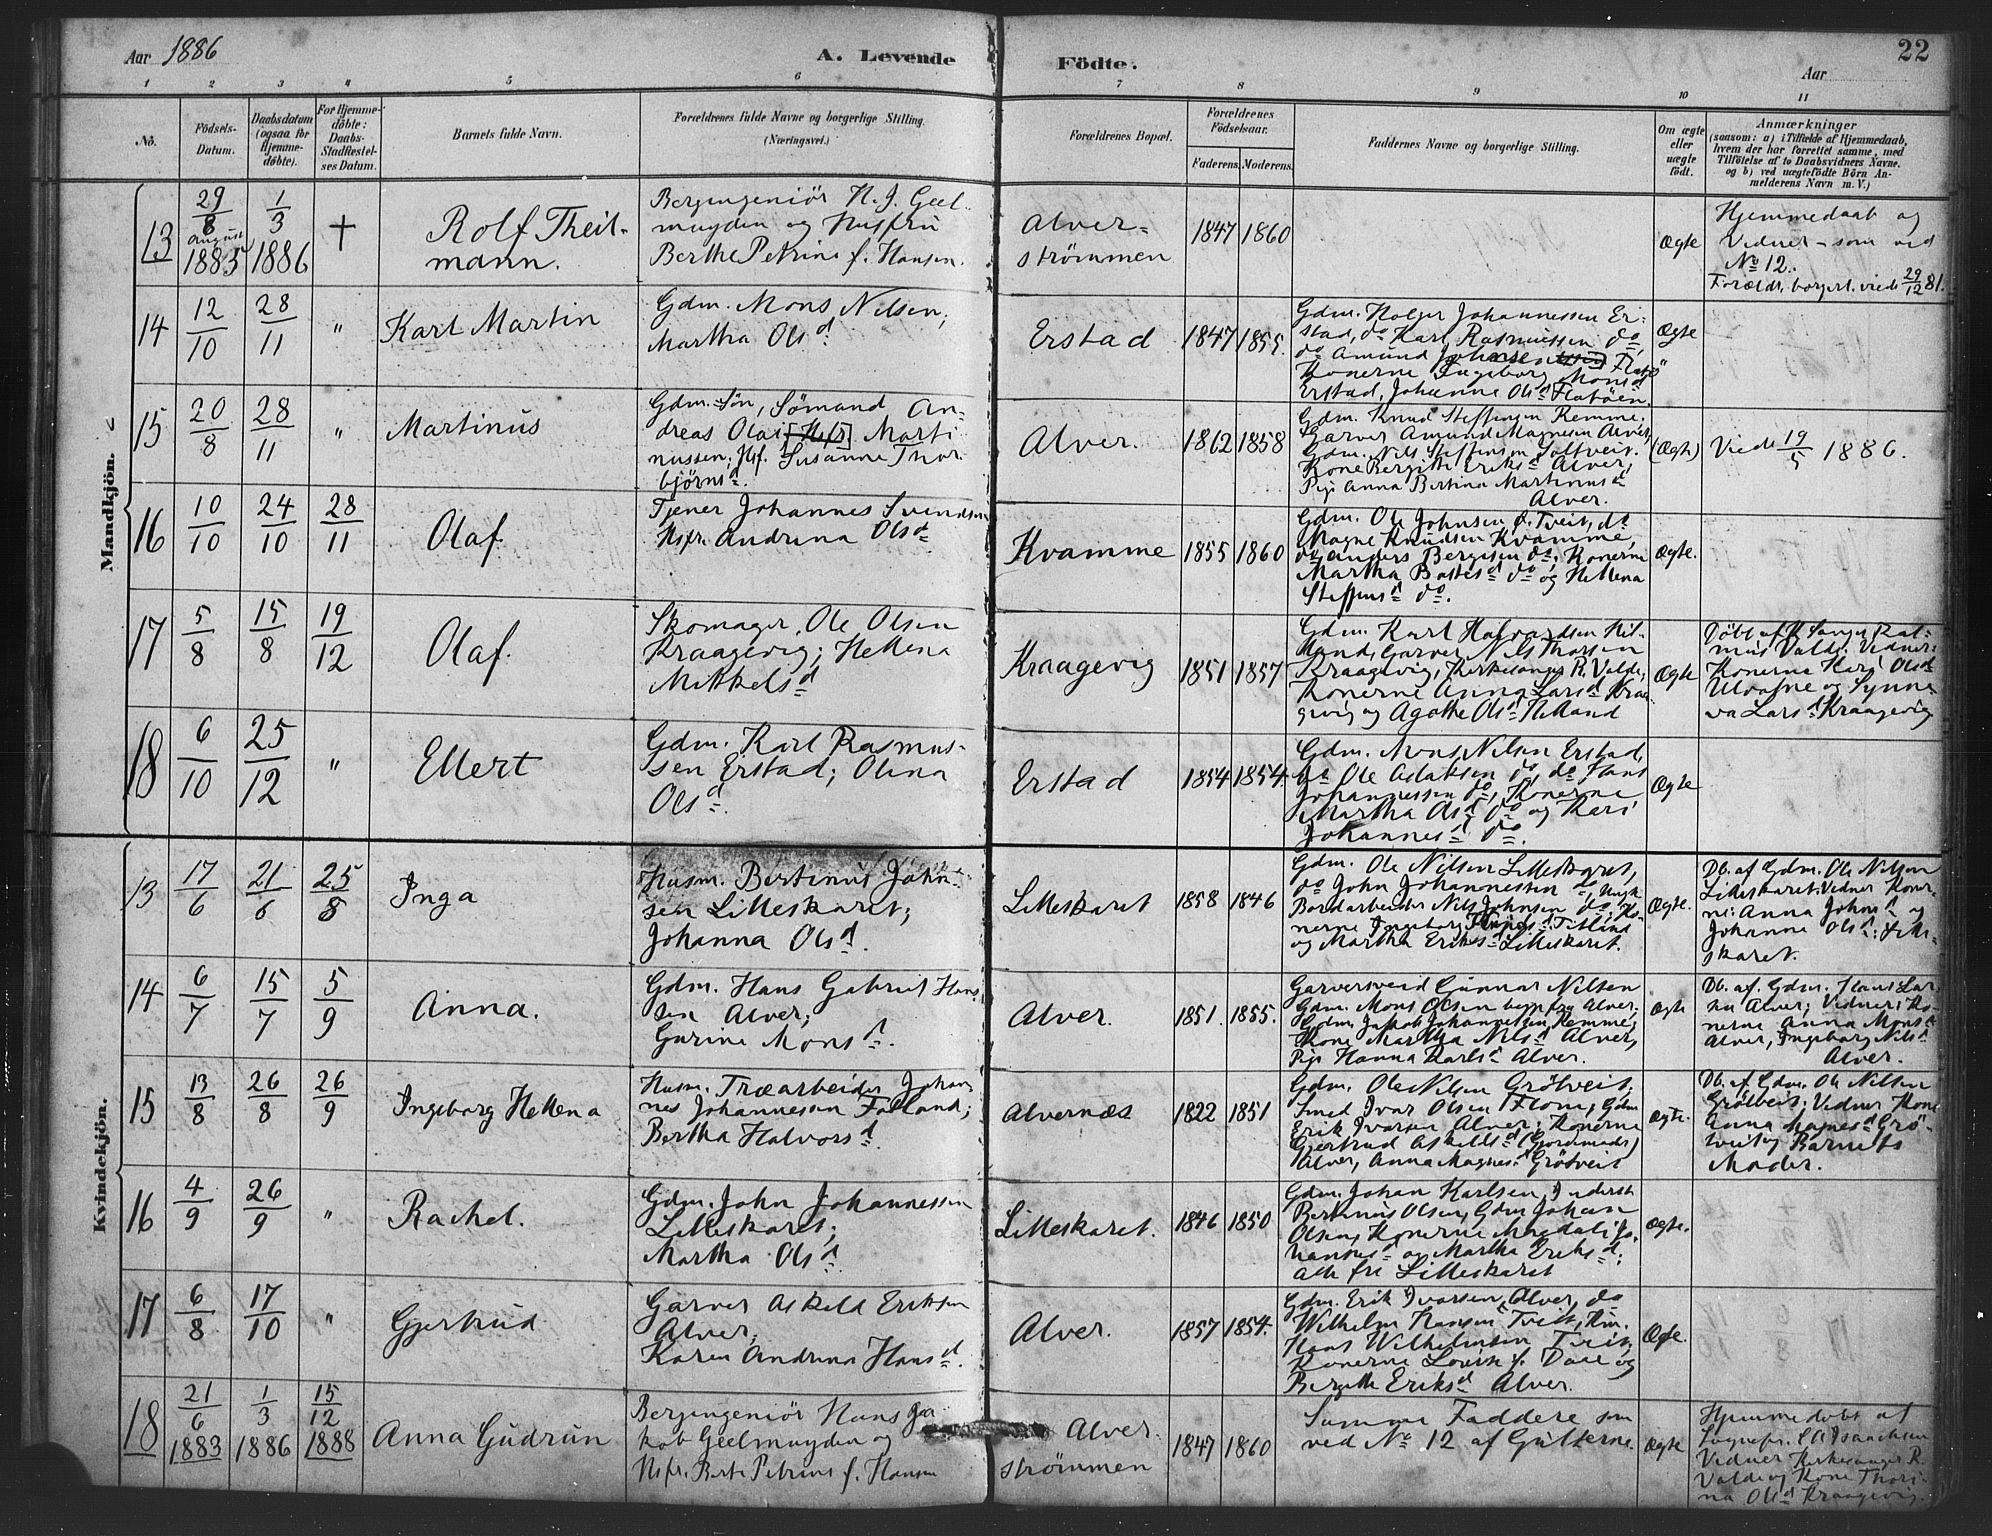 Aar 1886
A. Levende
Födte.
Aar
22
1
2
3
4
5
6
7
8
9
10
11
No.
Födsels-
Datum.
Daabsdatum
(ogsaa for
Hjemme-
döbte).
For Hjemme-
döbte:
Daabs-
Stadfæstel-
ses Datum.
Barnets fulde Navn.
Forældrenes fulde Navne og borgerlige Stilling.
(Næringsvei.)
Forældrenes Bopæl.
Forældrenes
Födselsaar.
Faderens.
Moderens.
Faddernes Navne og borgerlige Stilling.
Om ægte
eller
uægte
födt.
Anmærkninger
(saasom: a) i Tilfælde af Hjemmedaab,
hvem der har forrettet samme, med
Tilföielse af to Daabsvidners Navne.
og b) ved uægtefödte Börn An-
melderens Navn m. V.)
Mandkjön.
13
29/8
August
1885
1/3
1886
†
Rolf Theil-
mann.
Bergingeniör H. J. Geel-
muyden og Husfru
Berthe Petrine f. Hansen.
Alver-
strömmen
1847
1860
Ægte
Hjemmedaab og
Vidner - som ved
No 12.
Forældr. borgerl. viede 29/12 81.
14
12/10
28/11
"
Karl Martin
Gdm. Mons Nilsen;
Martha Olsd
Erstad
1847
1855.
Gdm. Holger Johannessen Er-
stad, do Karl Rasmussen do,
do Amund
Konerne Ingeborg Monsd
Erstad, Johanne Olsd Flatöen.
Ægte
"
15
20/8
28/11
"
Martinus
Gdm.-Sön, Sömand An-
dreas Olai [Hsfr] Marti-
nussen; Hsf. Susanna Thor-
björnsd.
Alver.
1862
1858
Gdm. Knud Steffensen Remme.
Garver Amund Magnesen Alver,
Gdm. Nils Steffensen Soltveit.
Kone Bergitte Eriksd Alver,
Pige Anna Bertina Martinusd
Alver.
(Ægte)
Viede 19/5 1886.
16
10/10
24/10
28/11
Olaf
Tjener Johannes Svendsen
Hsfr. Andrina Olsd
Kvamme
1855
1860
Gdm. Ole Johnsen Ö. Tveit, do
Magne Knudsen Kvamme,
do Anders Bergesen do; Konerne
Martha do og Hellena
Steffensd do.
Ægte.
17
5/8
15/8
19/12
Olaf.
Skomager, Ole Olsen
Kraagevig; Hellena
Mikkelsd
Kraagevig
1851
1857
Gdm. Karl Halvardsen Hil-
land, Garver Nils Thorsen
Kraagevig, Kirkesanger R. Valde,
Konerne Anna Larsd Kraa-
gevig og Agathe Olsd Helland
Ægte
Döbt af K.Sanger Ras-
mus Valde. Vidner:
Konerne Kari Olsd
og Synne-
va Larsd Kraagevig
18
6/10
25/12
"
Ellert
Gdm. Karl Rasmus-
sen Erstad; Olina
Olsd.
Erstad
1854
1854.
Gdm. Mons Nilsen Erstad,
do Ole Aslaksen do, do Hans
Johannessen do, Konerne
Martha Olsd do og Kari
Johannesd do.
Ægte
Kvindekjön.
13
17/6
21/6
25/8
Inga
Husm. Bertinus John-
sen Lilleskaret;
Johanna Olsd.
Lilleskaret
1858
1846
Gdm. Ole Nilsen Lilleskaret,
do John Johannessen do, Ungk.
Bordarbeider Nils Johnsen do; Ko-
nerne Ingeborg
og Martha Eriksd Lilleskaret.
Ægte.
Db. af Gdm. Ole Nilsen
Lilleskaret; Vidner Koner-
ne: Anna Johnsd og
Johanne Olsd Lille-
skaret.
14
6/7
15/7
5/9
Anna.
Gdm. Hans Gabriel Han-
sen Alver;
Gurine Monsd.
Alver.
1851.
1855.
Garversvend Gunnar Nilsen
Gdm. Mons Olsen begge fra Alver,
Gdm. Jakob Johannessen Remme;
Kone Martha Nilsd Alver,
Pige Hanna Karlsd Alver.
Ægte
Db. af. Gdm. Hans Lar-
sen Alver; Vidner: Ko-
nerne Anna Monsd
Alver, Ingeborg Nilsd
Alver.
15
13/8
26/8
26/9
Ingeborg Hellena
Husm. Træarbeider Johan-
nes Johannesen Folland;
Bertha Halvorsd
Alvernæs
1822
1851
Gdm. Ole Nilsen Grötveit.
Smed Ivar Olsen Flom, Gdm
Erik Ivarsen Alver; Konerne
Gjertrud Askildsd (Gordemoder)
Alver, Anna Magnesd Grötveit
Ægte.
Db. af. Gdm. Ole Nilsen
Grötveit; Vidner Kone
Anna Magnesd Grö-
tveit og Barnets
Moder.
16
4/9
26/9
"
Rachel.
Gdm. John Johannessen
Lilleskaret;
Martha Olsd.
Lilleskaret.
1846
1850
Gdm. Johan Karlsen, Inderst
Bertinius Olsen, Gdm Johan
Olsen, Konerne Magdali Jo-
hannesd og Martha Eriksd;
alle fra Lilleskaret
Ægte.
17
6/8
17/10
"
Gjertrud
Garver Askild Eriksen
Alver;
Karen Andrina Hansd.
Alver.
1857
1854.
Gdm. Erik Ivarsen, Alver, do
Wilhelm Hansen Tveit,
Hans Wilhelmsen Tveit;
Konerne Lovise f. Dale og
Bergitte Eriksd Alver.
Ægte.
18
21/6
1883
1/3
1886
15/12
1888
Anna Gudrun
Bergingeniör Hans Ja-
kob Geelmuyden og
Hsfr. Berte Petrine f. Hansen
Alver-
strömmen
1847
1860
Samme Faddere som
ved No 12 af Gutterne.
Ægte
Hjemmedöbt af
Sognepr. Isaachsen
Vidner Kirkesanger R.
Valde og Kone Thori-
na Olsd Kraagevig.